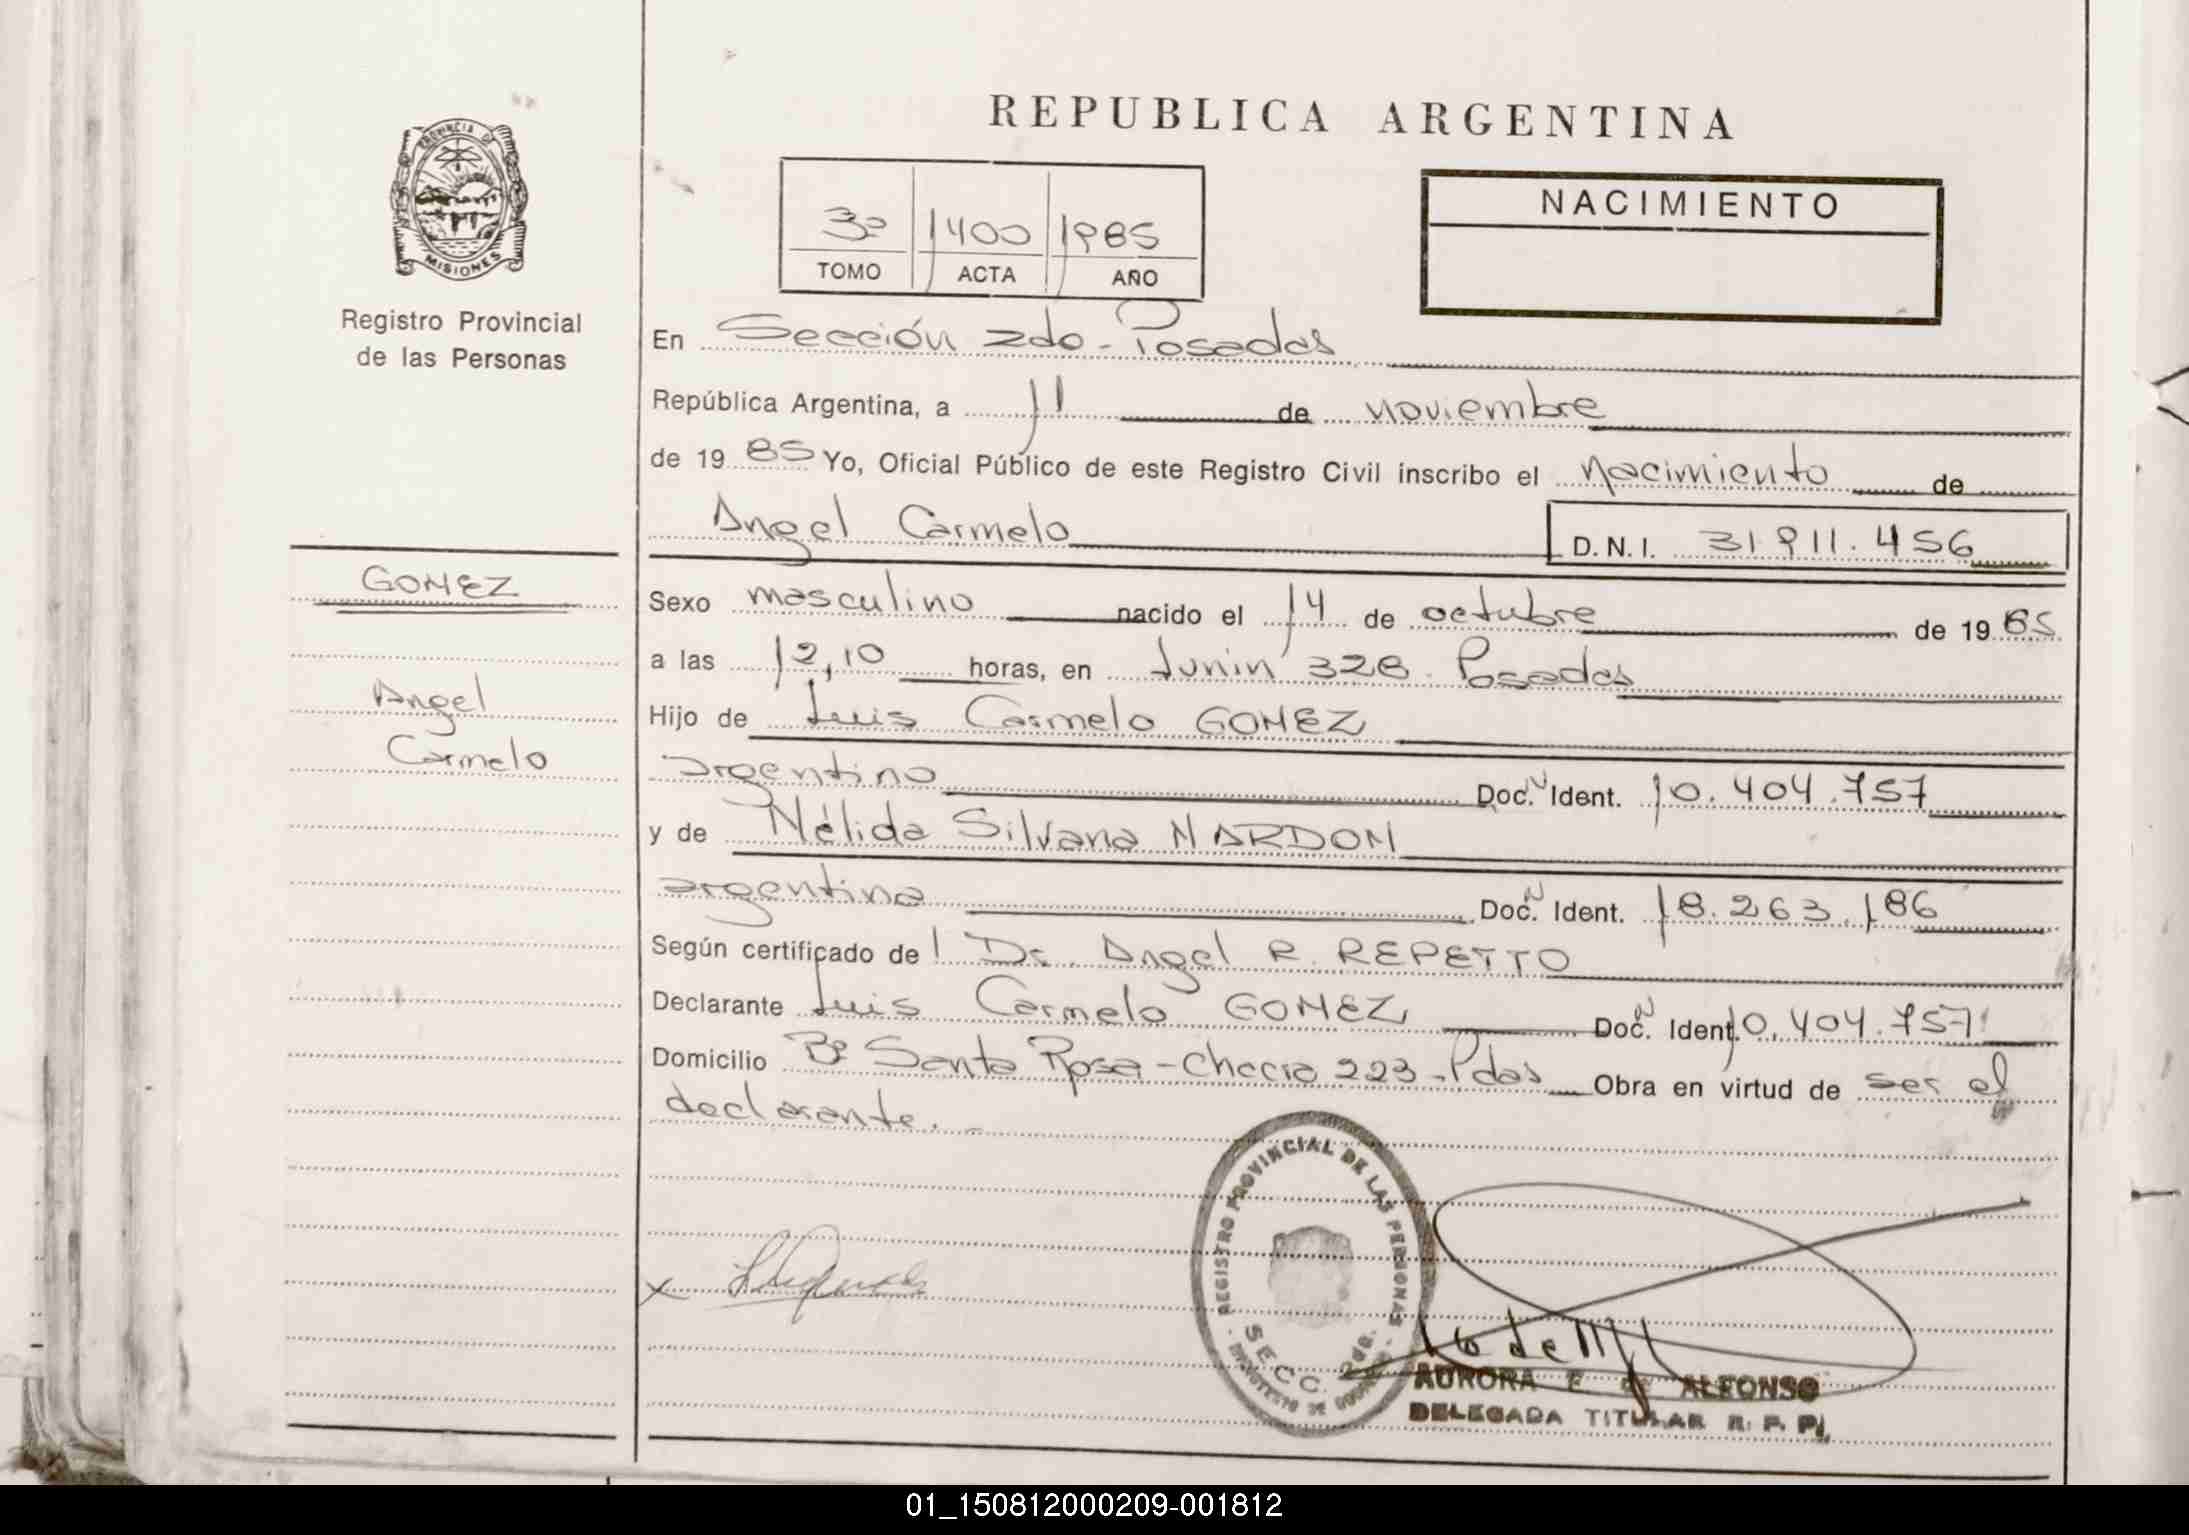 REPUBLICA ARGENTINA
PROVINCIA DE
MISIONES
Registro Provincial
de las Personas
3º 1400 1985
TOMO ACTA AÑO
NACIMIENTO
En Sección 2do - Posadas
República Argentina, a 11 de noviembre
de 1985 Yo, Oficial Público de este Registro Civil inscribo el nacimiento de
Angel Carmelo D.N.I. 31 911.456
GOMEZ
Angel
Carmelo
Sexo masculino nacido el 14 de octubre de 1985
a las 12,10 horas, en Junin 328. Posadas
Hijo de Luis Carmelo GOMEZ
argentino Doc. N Ident. 10.404.757
y de Nélida Silvana
argentina Doc. N Ident. 18.263.186
Según certificado de l Dr. Angel R. REPETTO
Declarante Luis Carmelo GOMEZ Doc. N Ident. 10.404.757
Domicilio Bº Santa Rosa - Chacra 223 - Pdas Obra en virtud de ser el
declarante. -
REGISTRO PROVINCIAL DE LAS PERSONAS
SECC. 2da.
x
AURORA E de ALFONSO
DELEGADA TITULAR R. P. P.
01_150812000209-001812